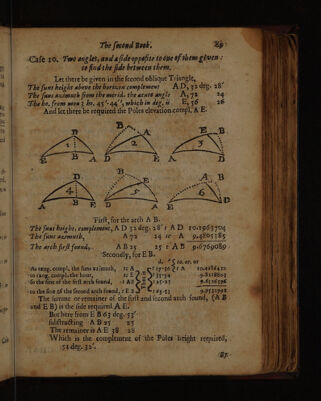 The second Book. 89
Case 10. Two angles, and a side opposite to one of them given:
to find the side between them.
Let there be given in the second oblique Triangle,
The suns height above the horizon complement A D, 32 deg. 28'
The suns azimuth from the merid. the acute angle A, 72 24
The ho. from noon 2 ho. 45'-44'', which in deg. is E, 56 26
And let there be required the Poles elevation compl. A E.
D B A E B
1 2 3
E B A D E A D
D D A B
4 5 6
A B E E B A D E
First, for the arch A B.
The suns height complement, A D 32 deg. 28' t A D 10.1963704
The suns azimuth, A 72 24 sc A 9.4805385
The arch first found, A B 25 25 t A B 9.6769089
Secondly, for E B.
As tang. compl. the suns azimuth, tc A
to tang. compl. the hour, tc E
So the sine of the first arch found, s A B
to the sine of the second arch found, s E B
The summe or remainer of the first and second arch found, (A B
and E B) is the side required A E.
But here from E B 63 deg. 53'
substracting A B 25 25
The remainer is A E 38 28
Which is the complement of the Poles height required,
51 deg. 32'.